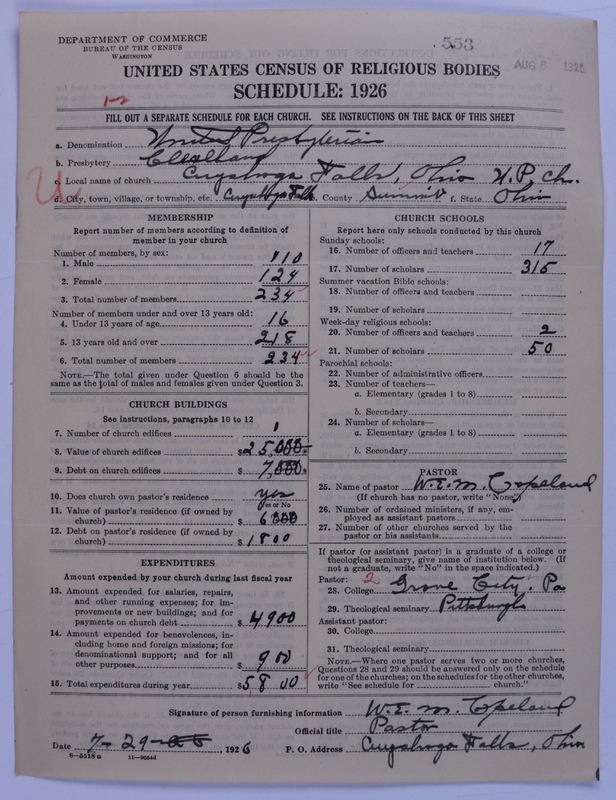 DEPARTMENT OF COMMERCE
BUREAU OF THE CENSUS
WASHINGTON
553
AUG 6 1926
UNITED STATES CENSUS OF RELIGIOUS BODIES
SCHEDULE: 1926
1-2
FILL OUT A SEPARATE SCHEDULE FOR EACH CHURCH. SEE INSTRUCTIONS ON THE BACK OF THIS SHEET
a. Denomination United Presbyterian
b. Presbytery Cleveland
c. Local name of church Cuyahoga Falls, Ohio U.P. Ch.
d. City, town, village, or township, etc. Cuyahoga Falls County Summit f. State Ohio
MEMBERSHIP
Report number of members according to definition of
member in your church
Number of members, by sex:
1. Male 110
2. Female 124
3. Total number of members 234
Number of members under and over 13 years old:
4. Under 13 years of age 16
5. 13 years old and over 218
6. Total number of members 234
NOTE.—The total given under Question 6 should be the
same as the total of males and females given under Question 3.
CHURCH BUILDINGS
See instructions, paragraphs 10 to 12
7. Number of church edifices 1
8. Value of church edifices $25,000
9. Debt on church edifices $7,000
10. Does church own pastor's residence yes
Yes or No
11. Value of pastor's residence (if owned by
church) $6000
12. Debt on pastor's residence (if owned by
church) $1800
EXPENDITURES
Amount expended by your church during last fiscal year
13. Amount expended for salaries, repairs,
and other running expenses; for im-
provements or new buildings; and for
payments on church debt $4900
14. Amount expended for benevolences, in-
cluding home and foreign missions; for
denominational support; and for all
other purposes $900
15. Total expenditures during year $5800
CHURCH SCHOOLS
Report here only schools conducted by this church
Sunday schools:
16. Number of officers and teachers 17
17. Number of scholars 315
Summer vacation Bible schools:
18. Number of officers and teachers
19. Number of scholars
Week-day religious schools:
20. Number of officers and teachers 2
21. Number of scholars 50
Parochial schools:
22. Number of administrative officers
23. Number of teachers—
a. Elementary (grades 1 to 8)
b. Secondary
24. Number of scholars—
a. Elementary (grades 1 to 8)
b. Secondary
PASTOR
25. Name of pastor W.E.M. Copeland
(If church has no pastor, write "None")
26. Number of ordained ministers, if any, em-
ployed as assistant pastors
27. Number of other churches served by the
pastor or his assistants
If pastor (or assistant pastor) is a graduate of a college or
theological seminary, give name of institution below. (If
not a graduate, write "No" in the space indicated.)
Pastor: 2
28. College Grove City, Pa
29. Theological seminary Pittsburgh
Assistant pastor:
30. College
31. Theological seminary
NOTE.—Where one pastor serves two or more churches,
Questions 28 and 29 should be answered only on the schedule
for one of the churches; on the schedules for the other churches,
write "See schedule for church."
Signature of person furnishing information W.E.M. Copeland
Official title Pastor
Date 7-29, 1926 P. O. Address Cuyahoga Falls, Ohio